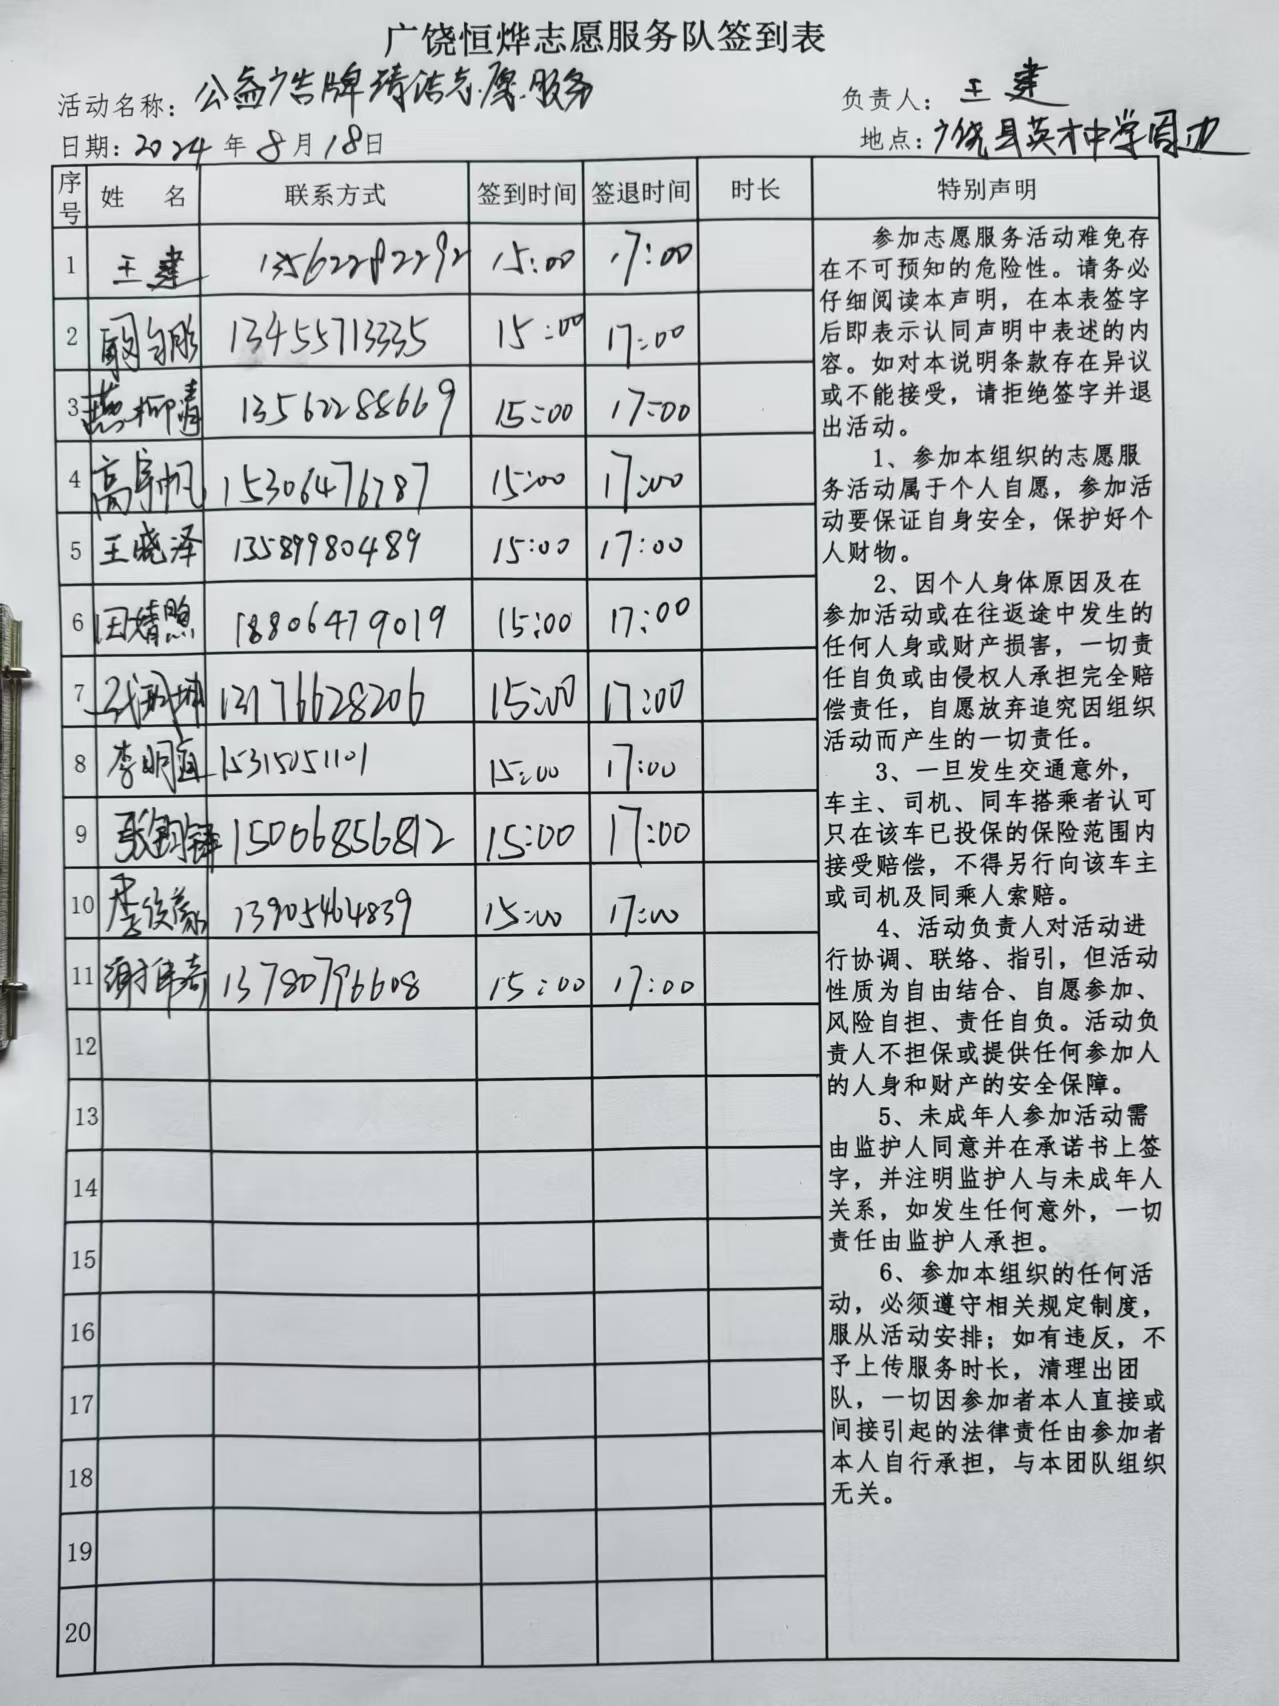 广饶恒烨志愿服务队签到表
活动名称：公益广告牌清洁志愿服务 负责人：王建
日期：2024年8月18日 地点：广饶县英才中学周边
序号 姓 名 联系方式 签到时间 签退时间 时长 特别声明
1 王建 13562282292 15:00 17:00
2 13455713335 15:00 17:00
3 燕柳青 13562288669 15:00 17:00
4 高宇帆 15306476787 15:00 17:00
5 王晓泽 13589980489 15:00 17:00
6 田婧煦 18806479019 15:00 17:00
7 13176628206 15:00 17:00
8 李明宜 15315051101 15:00 17:00
9 15006856812 15:00 17:00
10 李俊豪 13905464839 15:00 17:00
11 谢伟奇 13780796608 15:00 17:00
12
13
14
15
16
17
18
19
20
参加志愿服务活动难免存
在不可预知的危险性。请务必
仔细阅读本声明，在本表签字
后即表示认同声明中表述的内
容。如对本说明条款存在异议
或不能接受，请拒绝签字并退
出活动。
1、参加本组织的志愿服
务活动属于个人自愿，参加活
动要保证自身安全，保护好个
人财物。
2、因个人身体原因及在
参加活动或在往返途中发生的
任何人身或财产损害，一切责
任自负或由侵权人承担完全赔
偿责任，自愿放弃追究因组织
活动而产生的一切责任。
3、一旦发生交通意外，
车主、司机、同车搭乘者认可
只在该车已投保的保险范围内
接受赔偿，不得另行向该车主
或司机及同乘人索赔。
4、活动负责人对活动进
行协调、联络、指引，但活动
性质为自由结合、自愿参加、
风险自担、责任自负。活动负
责人不担保或提供任何参加人
的人身和财产的安全保障。
5、未成年人参加活动需
由监护人同意并在承诺书上签
字，并注明监护人与未成年人
关系，如发生任何意外，一切
责任由监护人承担。
6、参加本组织的任何活
动，必须遵守相关规定制度，
服从活动安排；如有违反，不
予上传服务时长，清理出团
队，一切因参加者本人直接或
间接引起的法律责任由参加者
本人自行承担，与本团队组织
无关。